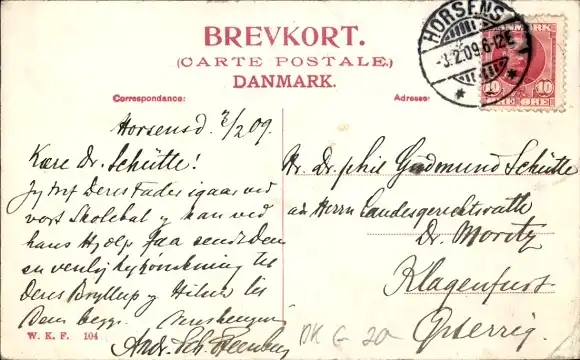 BREVKORT.
(CARTE POSTALE.)
DANMARK.
HORSENS
-3.2.09.6-12E
DANMARK
10 10
ØRE ØRE
Correspondance:
Adresse:
Horsens d. 3/2 09.
Kære Dr. Schütte!
Jeg traf Deres Fader igaar ved
vort Skolebal og kan ved
hans Hjælp faa sendt Dem
en venlig Lykønskning til
Deres Bryllup og Hilsen til
Dem begge.
Hr. Dr. phil Gudmund Schütte
adr Herrn Landesgerichtsrath
Dr. Moritz
Klagenfurt
Østerrig.
W. K. F. 104
DK G 20